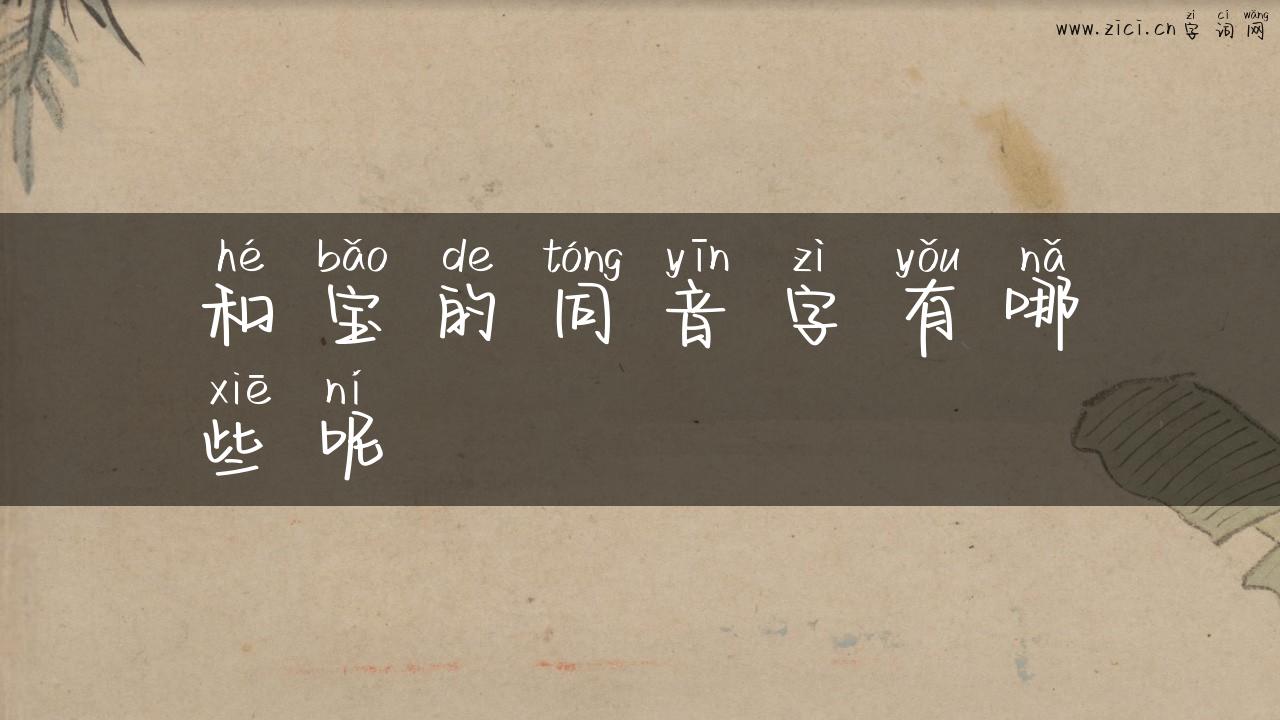 zì cí wǎng
www.zici.cn 字 词 网
hé bǎo de tóng yīn zì yǒu nǎ
和 宝 的 同 音 字 有 哪
xiē ní
些 呢